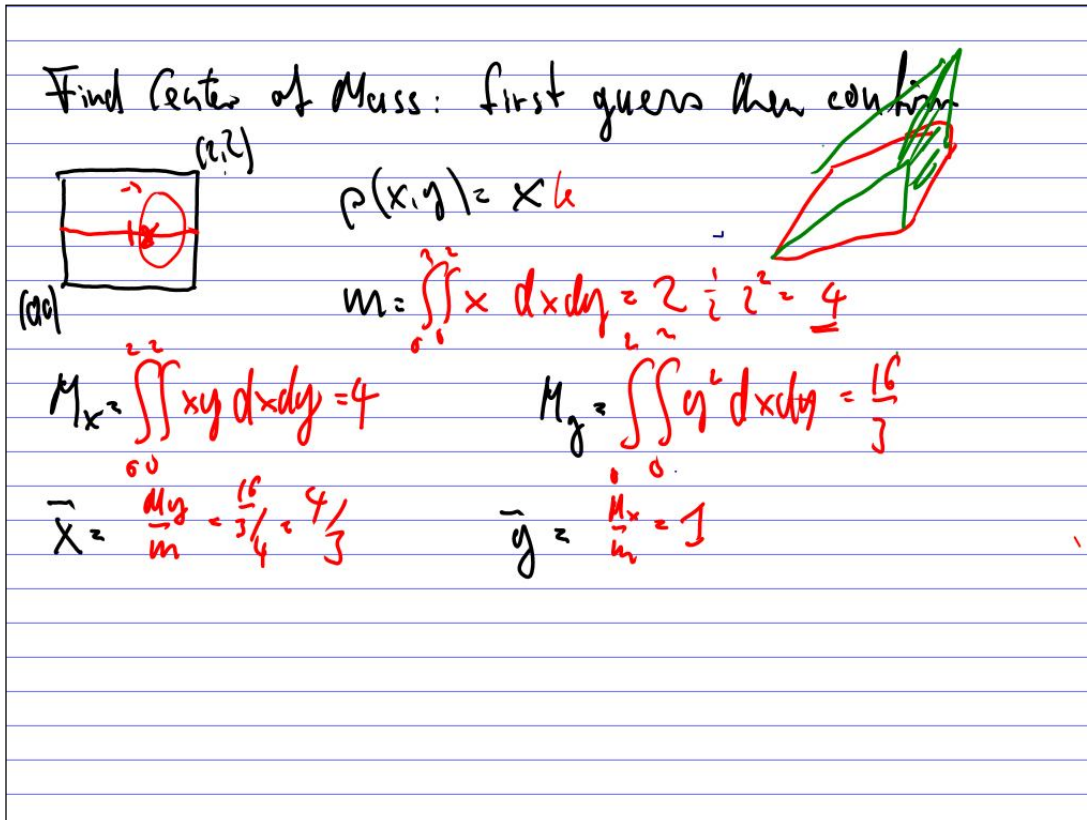 Find Center of Mass: first guess then confirm
(2,2)
ρ(x,y) = x k
(0,0)
m = ∫₀²∫₀² x dxdy = 2 ½ 2² = 4
Mₓ = ∫₀²∫₀² xy dxdy = 4
M_y = ∫₀²∫₀² y² dxdy = 16/3
x̄ = My/m = 16/3/4 = 4/3
ȳ = Mx/m = 1